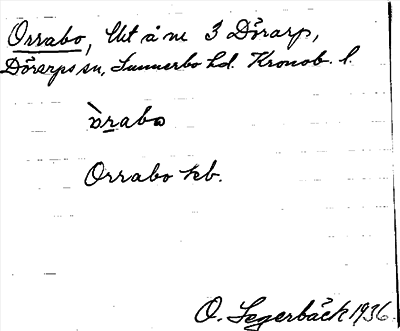 Orrabo, Ut å nr 3 Dörarp,
Dörarps sn, Sunnerbo hd. Kronob. l.
òrabo
Orrabo kb.
O. Segerbäck 1936.